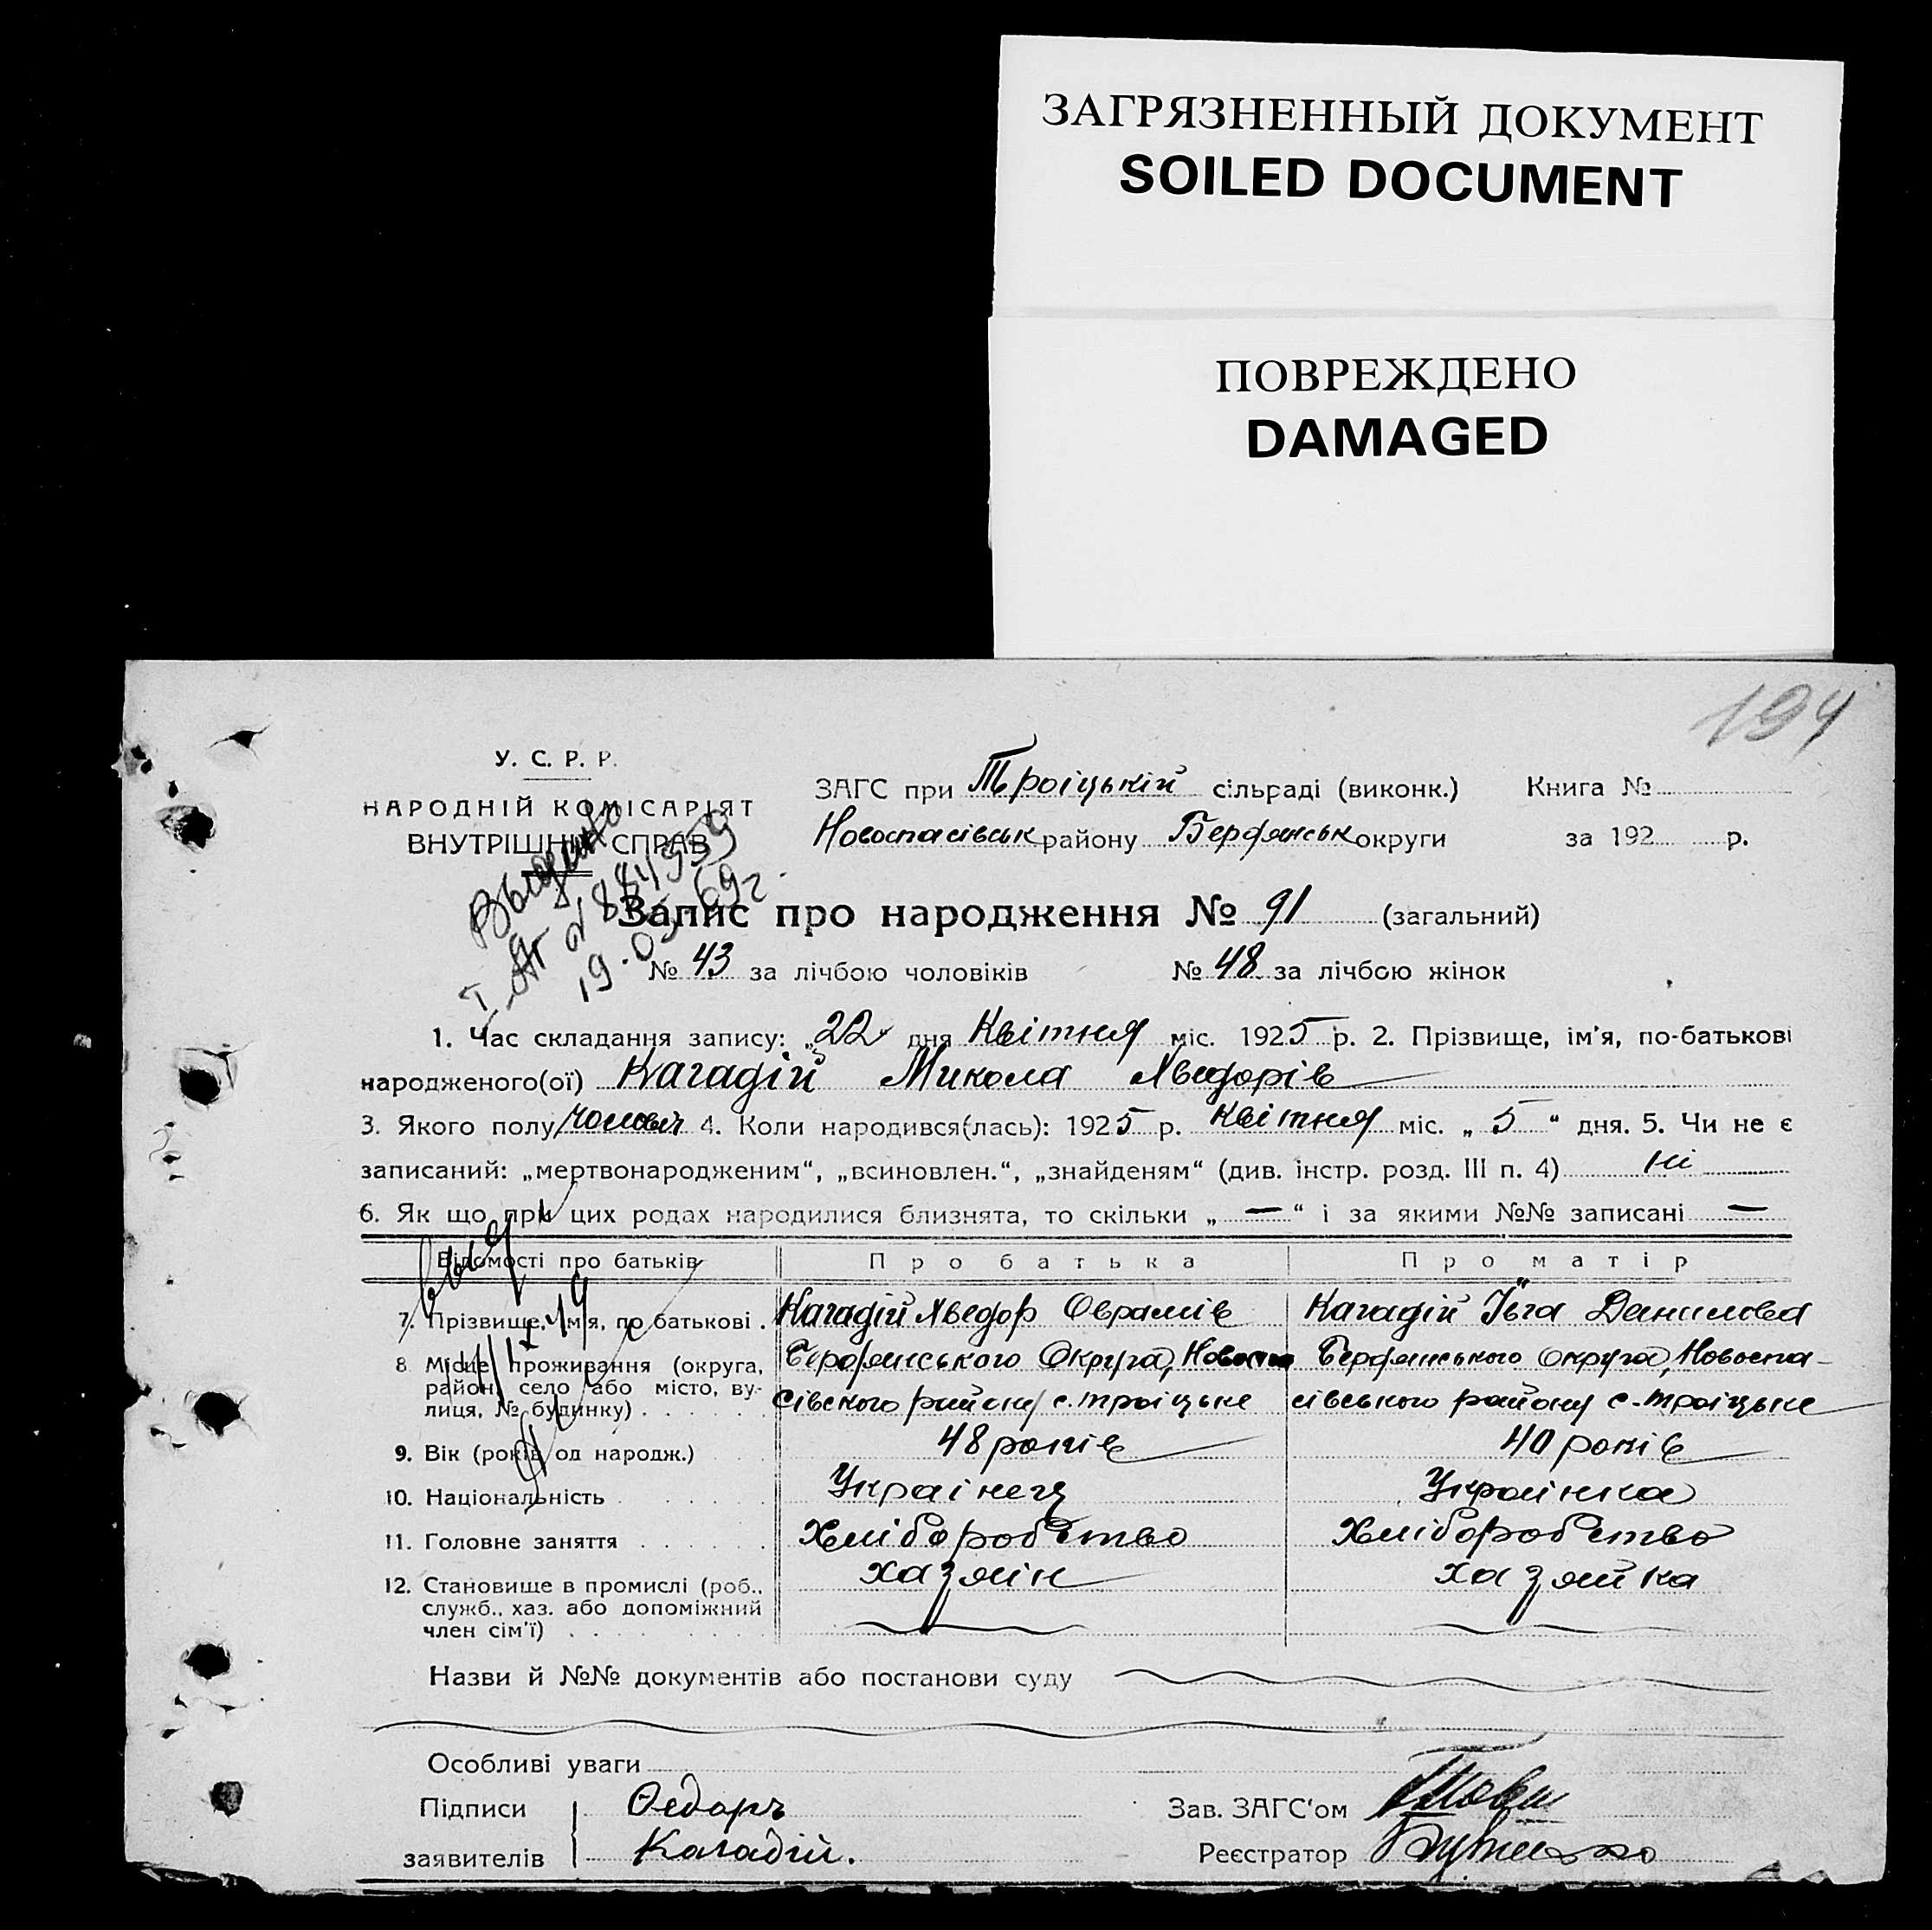 ЗАГРЯЗНЕННЫЙ ДОКУМЕНТ
SOILED DOCUMENT
ПОВРЕЖДЕНО
DAMAGED
194
У. С. Р. Р.
НАРОДНІЙ КОМІСАРІЯТ
ВНУТРІШНІХ СПРАВ
ЗАГС при Троіцькій сільраді (виконк.) Книга №
Новоспасівськ району Бердянськ округи за 192 р.
Выдано
19.05.69г.
Запис про народження № 91 (загальний)
№ 43 за лічбою чоловіків № 48 за лічбою жінок
1. Час складання запису: „22“ дня Квітня міс. 1925 р. 2. Прізвище, ім'я, по-батькові
народженого(ої) Кагадій Микола Хведорів
3. Якого полу чоловіч 4. Коли народився(лась): 1925 р. квітня міс. „5“ дня. 5. Чи не є
записаний: „мертвонародженим“, „всиновлен.“, „знайденям“ (див. інстр. розд. III п. 4) ні
6. Як що при цих родах народилися близнята, то скільки „—“ і за якими №№ записані —
Відомості про батьків Про батька Про матір
7. Прізвище, ім'я, по батькові . Кагадій Хведор Оврамів Кагадій Ївга Данилова
8 Місце проживання (округа, район, село або місто, вулиця, № будинку) . . . . . Бердянського Округа, Новоспа Бердянського Округа, Новоспа-
сівского району с. троіцьке сівського району с. троіцьке
9. Вік (років од народж.) 48 років 40 років
10. Національність . . . . . Украінець Украінка
11. Головне заняття . . . . . . Хліборобство Хліборобство
12. Становище в промислі (роб., служб., хаз. або допоміжний член сім'ї) . . . . . . . . хазяін хазяйка
Назви й №№ документів або постанови суду
Особливі уваги
Підписи Ѳедоръ Зав. ЗАГС'ом
заявителів Кагадій. Реєстратор